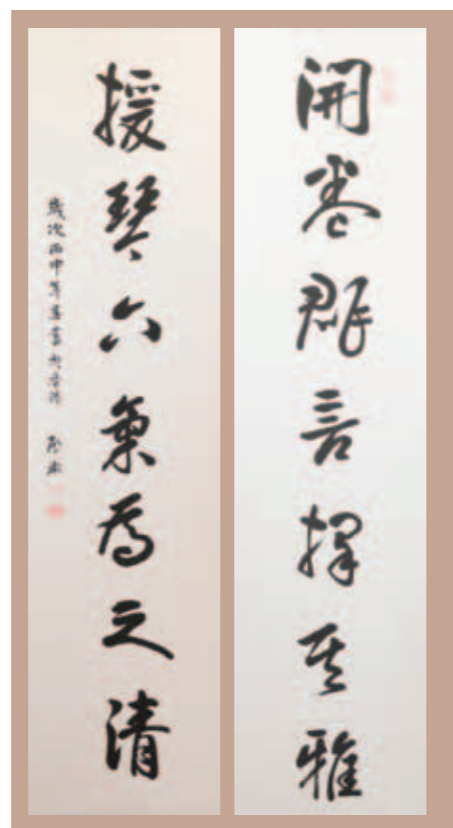 開卷群言擇其雅
援琴六氣為之清
歲次丙申年